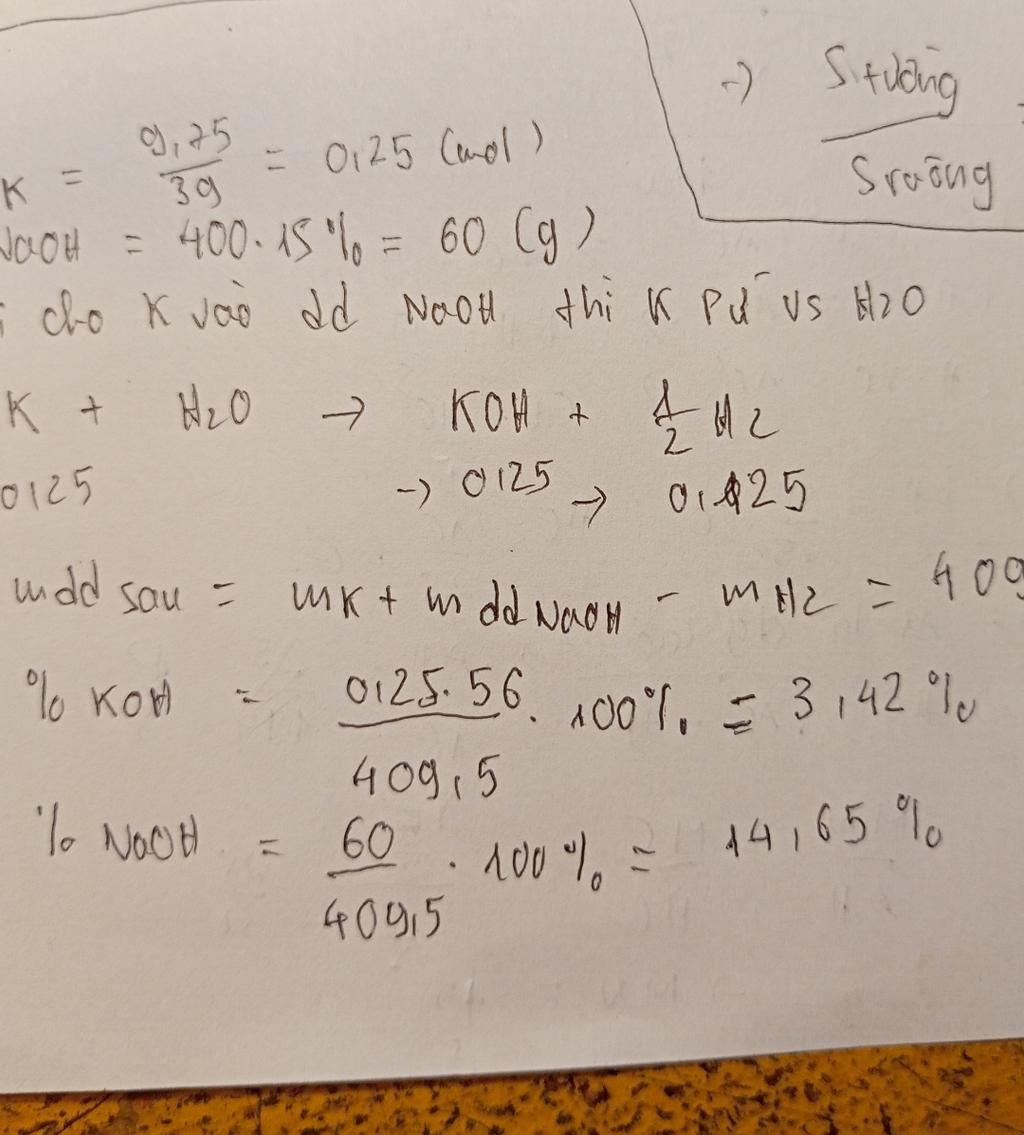 K = 9,75/39 = 0,25 (mol)
NaOH = 400.15% = 60 (g)
cho K vào dd NaOH thì K pứ vs H2O
K + H2O → KOH + 1/2 H2
0,25 → 0,25 → 0,125
mdd sau = mK + mddNaOH - mH2 = 409
% KOH = 0,25.56/409,5 . 100% = 3,42%
% NaOH = 60/409,5 . 100% = 14,65%
→ S tường
S ruộng